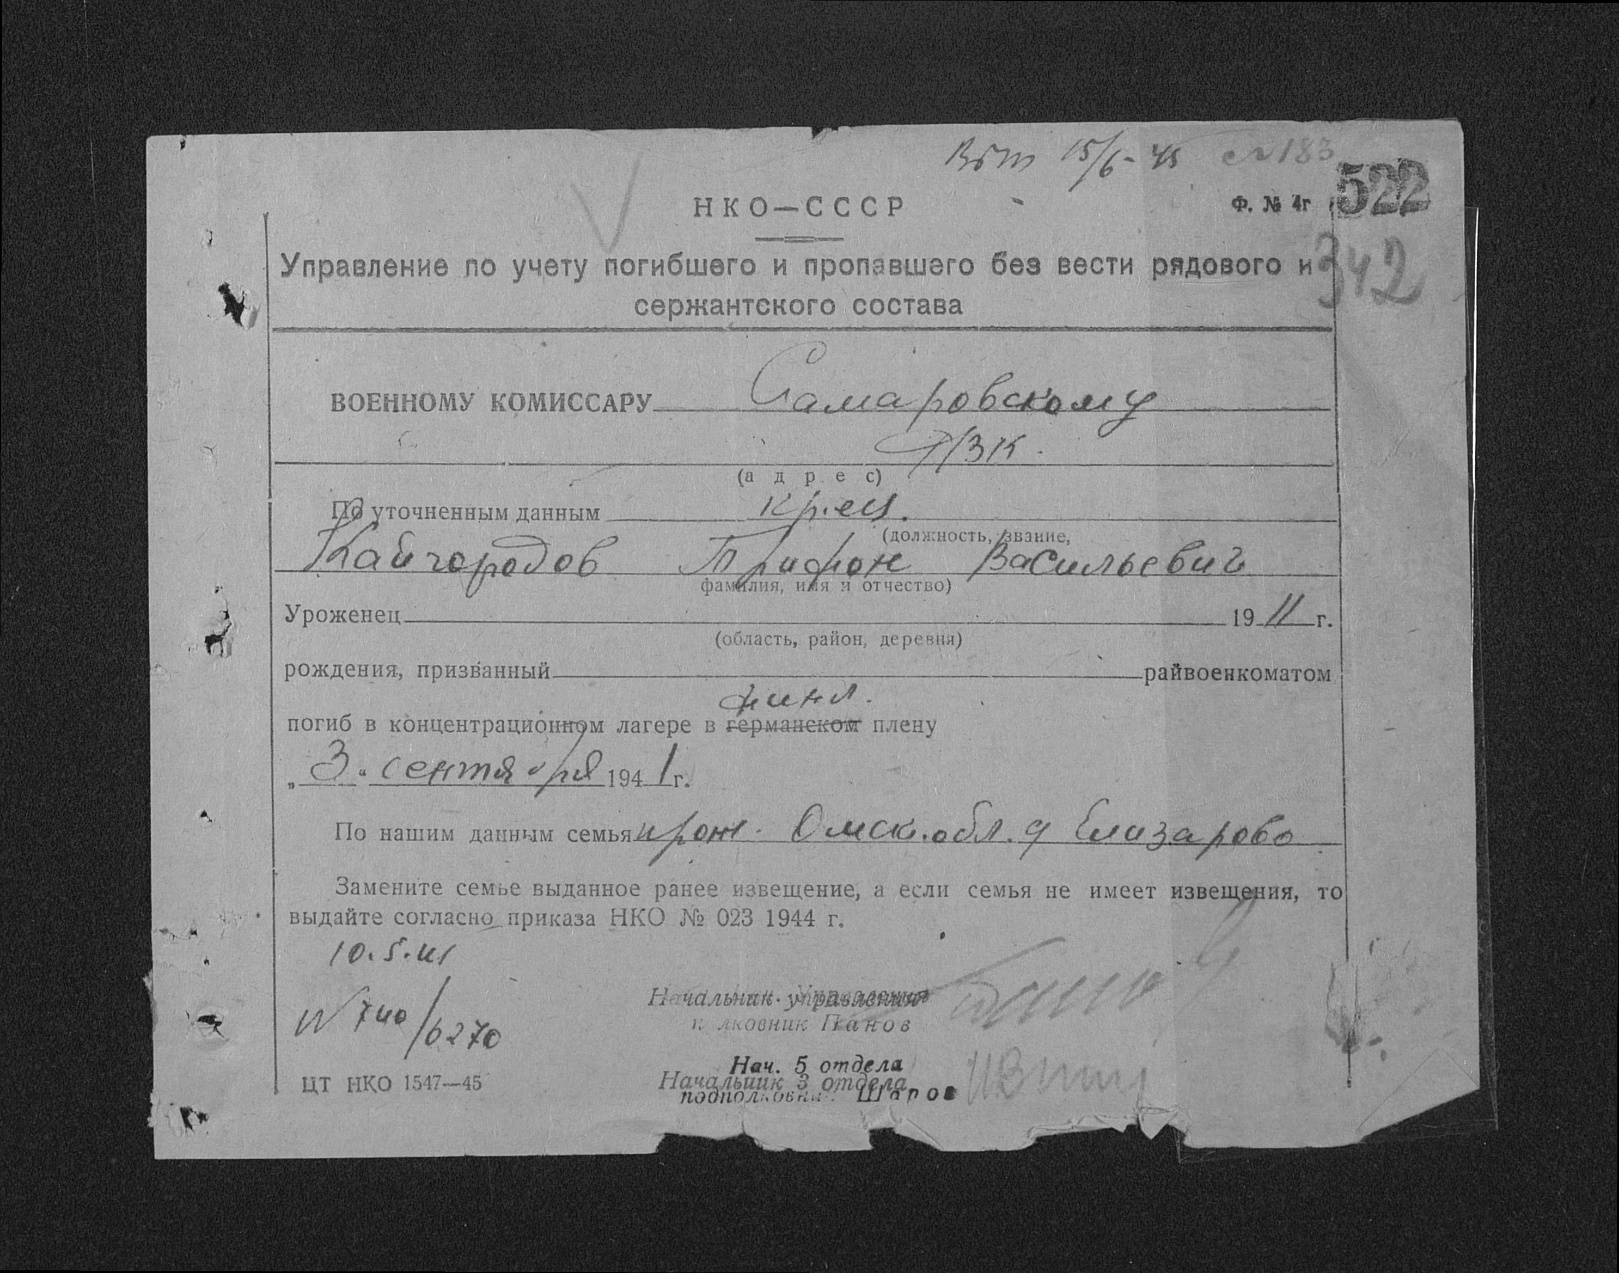 15/6-45 183
522
НКО—СССР Ф. № 4г
342
Управление по учету погибшего и пропавшего без вести рядового и
сержантского состава
ВОЕННОМУ КОМИССАРУ Самаровскому
РВК.
(адрес)
По уточненным данным кр-ец.
(должность, звание,
Кайгородов Трифон Васильевич
фамилия, имя и отчество)
Уроженец 1911 г.
(область, район, деревня)
рождения, призванный райвоенкоматом
финл.
погиб в концентрационном лагере в германском плену
„3" сентября 1941 г.
По нашим данным семья прож. Омск. обл. д Елизарово
Замените семье выданное ранее извещение, а если семья не имеет извещения, то
выдайте согласно приказа НКО № 023 1944 г.
10.5.45
Начальник управления
Панов
N 740/6270
Нач. 5 отдела
ЦТ НКО 1547—45 Начальник 3 отдела
Шаров